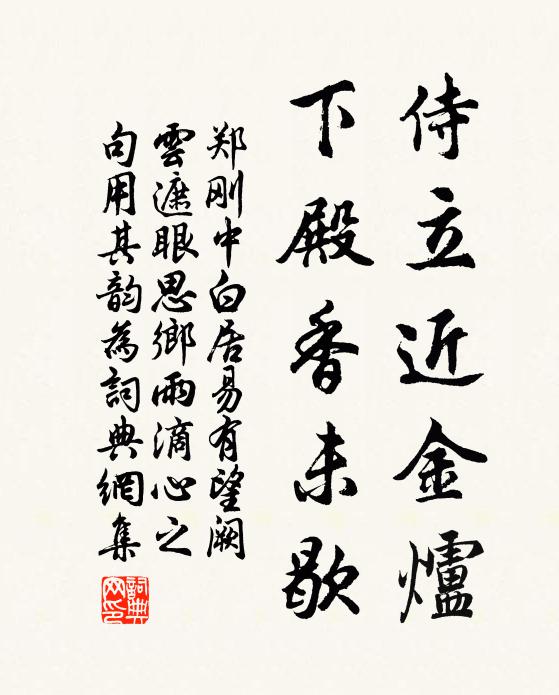 侍立近金爐
下殿香未歇
郑刚中白居易有望阙
雲遮眼思鄉雨滴心之
句用其韵為詞典網集
詞典